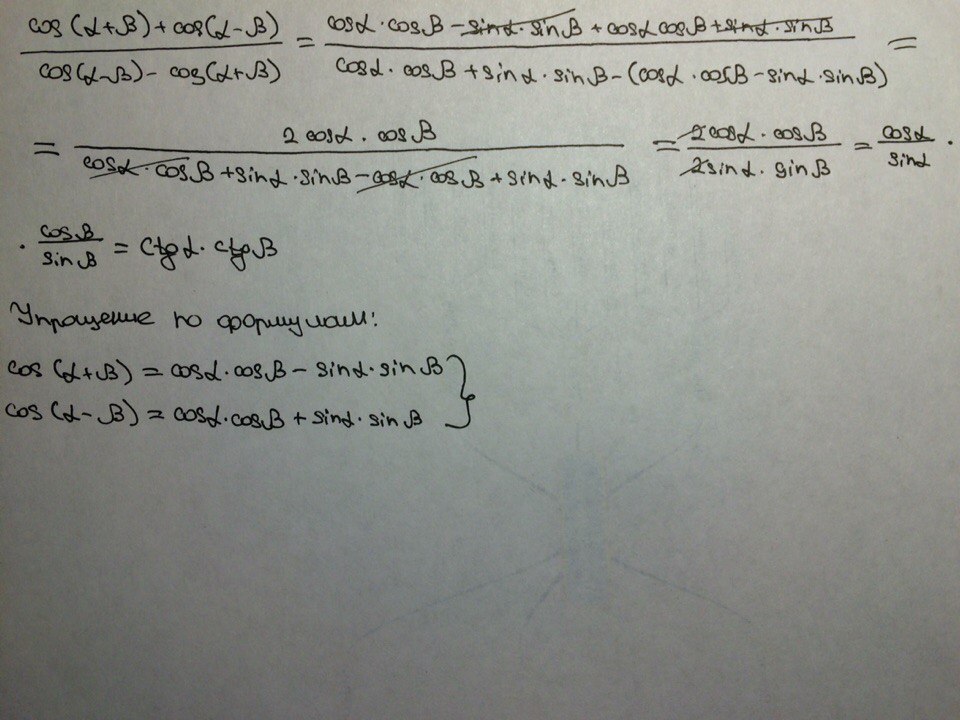 (cos(α+β)+cos(α-β))/(cos(α-β)-cos(α+β)) = (cosα·cosβ-sinα·sinβ+cosαcosβ+sinα·sinβ)/(cosα·cosβ+sinα·sinβ-(cosα·cosβ-sinα·sinβ)) =
= (2cosα·cosβ)/(cosα·cosβ+sinα·sinβ-cosα·cosβ+sinα·sinβ) = (2cosα·cosβ)/(2sinα·sinβ) = cosα/sinα ·
· cosβ/sinβ = ctgα·ctgβ
Упрощение по формулам:
cos(α+β) = cosα·cosβ - sinα·sinβ }
cos(α-β) = cosα·cosβ + sinα·sinβ